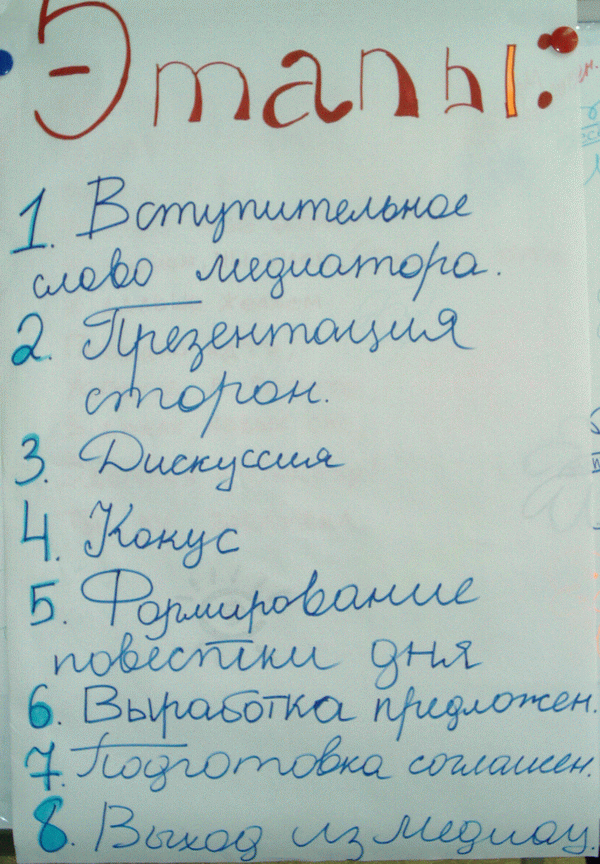 Этапы:
1. Вступительное
слово медиатора.
2. Презентация
сторон.
3. Дискуссия
4. Кокус
5. Формирование
повестки дня
6. Выработка предложен.
7. Подготовка соглашен.
8. Выход из медиац.